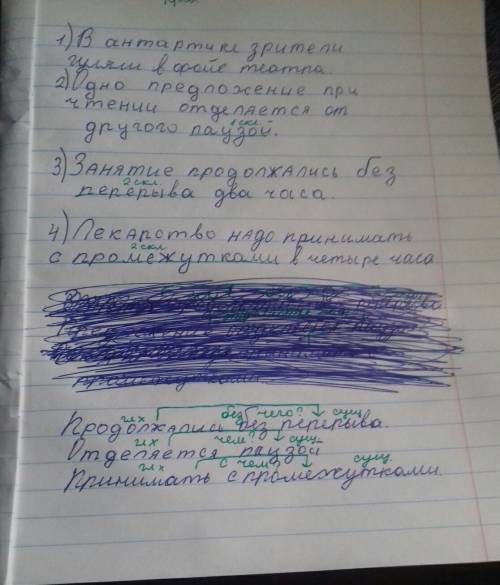 1) В антартике зрители
гуляли в фойе театра.
2) Одно предложение при
чтении отделается от
1 скл.
другого паузой.
3) Занятие продолжались без
2 скл.
перерыва два часа.
4) Лекарство надо принимать
2 скл
с промежутками в четыре часа
гл х без чего? сущ.
Продолжались без перерыва.
гл х чем? сущ.
Отделается паузой
гл х с чем? сущ.
Принимать с промежутками.